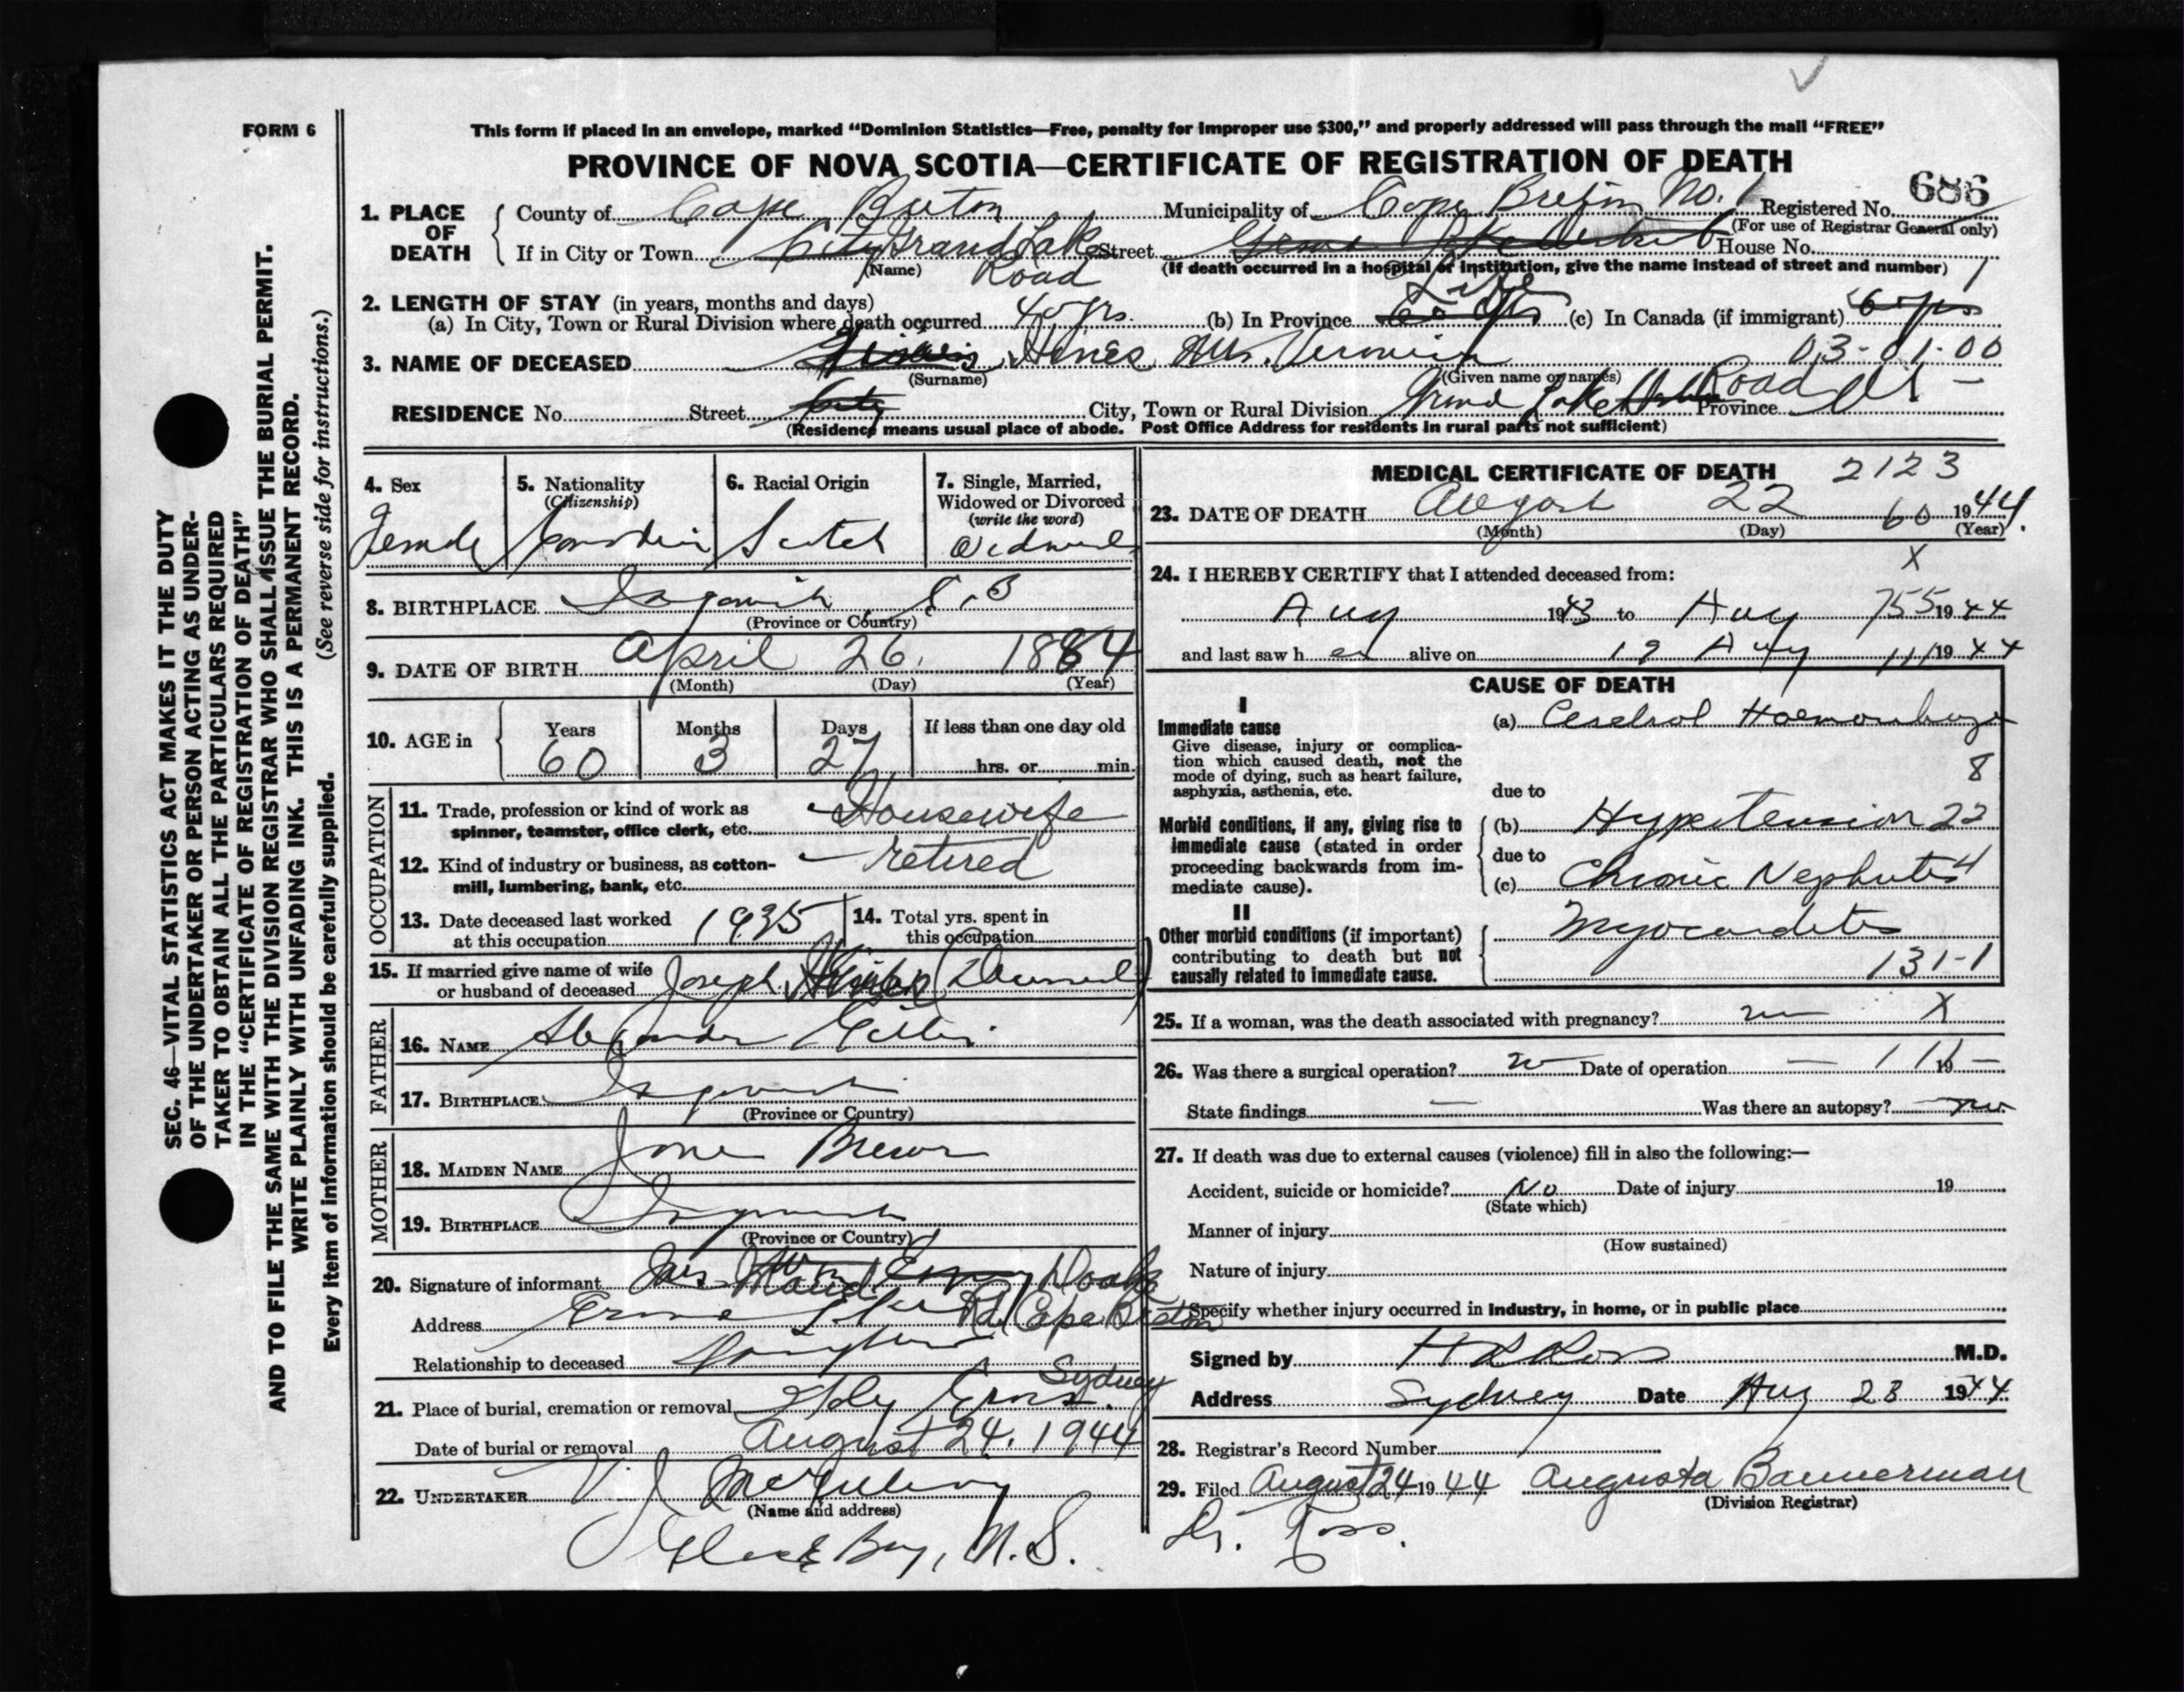 FORM 6
This form if placed in an envelope, marked “Dominion Statistics—Free, penalty for improper use $300,” and properly addressed will pass through the mail “FREE”
PROVINCE OF NOVA SCOTIA—CERTIFICATE OF REGISTRATION OF DEATH
686
1. PLACE OF DEATH
County of Cape Breton Municipality of Cape Breton No. 1 Registered No.
(For use of Registrar General only)
If in City or Town City Grand Lake Road Street House No.
(Name) (If death occurred in a hospital or institution, give the name instead of street and number)
2. LENGTH OF STAY (in years, months and days)
(a) In City, Town or Rural Division where death occurred 40 yrs. (b) In Province Life (c) In Canada (if immigrant)
3. NAME OF DECEASED Hines Mrs. 03-01-00
(Surname) (Given name or names)
RESIDENCE No. Street City City, Town or Rural Division Grand Lake Road Province
(Residence means usual place of abode. Post Office Address for residents in rural parts not sufficient)
4. Sex Female
5. Nationality (Citizenship) Canadian
6. Racial Origin Scotch
7. Single, Married, Widowed or Divorced (write the word) Widowed
8. BIRTHPLACE C.B
(Province or Country)
9. DATE OF BIRTH April 26. 1884
(Month) (Day) (Year)
10. AGE in Years 60 Months 3 Days 27 If less than one day old hrs. or min.
OCCUPATION
11. Trade, profession or kind of work as spinner, teamster, office clerk, etc. Housewife
12. Kind of industry or business, as cotton-mill, lumbering, bank, etc. retired
13. Date deceased last worked at this occupation 1935
14. Total yrs. spent in this occupation
15. If married give name of wife or husband of deceased Joseph
FATHER
16. NAME Alexander Gillis
17. BIRTHPLACE
(Province or Country)
MOTHER
18. MAIDEN NAME Jane
19. BIRTHPLACE
(Province or Country)
20. Signature of informant Mrs Maud Doak
Address Grand Lake Rd. Cape Breton
Relationship to deceased Daughter
21. Place of burial, cremation or removal Holy Cross. Sydney
Date of burial or removal August 24. 1944
22. UNDERTAKER V. J.
(Name and address)
Glace Bay, N.S.
MEDICAL CERTIFICATE OF DEATH 2123
23. DATE OF DEATH August 22 60 1944.
(Month) (Day) (Year)
X
24. I HEREBY CERTIFY that I attended deceased from:
Aug 1943 to Aug 755 1944
and last saw her alive on 19 Aug 111 1944
CAUSE OF DEATH
I
Immediate cause
Give disease, injury or complication which caused death, not the mode of dying, such as heart failure, asphyxia, asthenia, etc.
(a) Cerebral Haemorrhage
8
due to
Morbid conditions, if any, giving rise to immediate cause (stated in order proceeding backwards from immediate cause).
(b) Hypertension 22
due to
(c) Chronic Nephritis 4
II
Other morbid conditions (if important) contributing to death but not causally related to immediate cause.
Myocarditis
131-1
25. If a woman, was the death associated with pregnancy? no X
26. Was there a surgical operation? no Date of operation — 111 19 —
State findings — Was there an autopsy? no
27. If death was due to external causes (violence) fill in also the following:—
Accident, suicide or homicide? No Date of injury 19
(State which)
Manner of injury
(How sustained)
Nature of injury
Specify whether injury occurred in industry, in home, or in public place
Signed by H R Ross M.D.
Address Sydney Date Aug 23 1944
28. Registrar's Record Number
29. Filed August 24 1944 Augusta Bannerman
(Division Registrar)
Dr. Ross.
SEC. 46—VITAL STATISTICS ACT MAKES IT THE DUTY
OF THE UNDERTAKER OR PERSON ACTING AS UNDER-
TAKER TO OBTAIN ALL THE PARTICULARS REQUIRED
IN THE “CERTIFICATE OF REGISTRATION OF DEATH”
AND TO FILE THE SAME WITH THE DIVISION REGISTRAR WHO SHALL ISSUE THE BURIAL PERMIT.
WRITE PLAINLY WITH UNFADING INK. THIS IS A PERMANENT RECORD.
Every item of information should be carefully supplied. (See reverse side for instructions.)